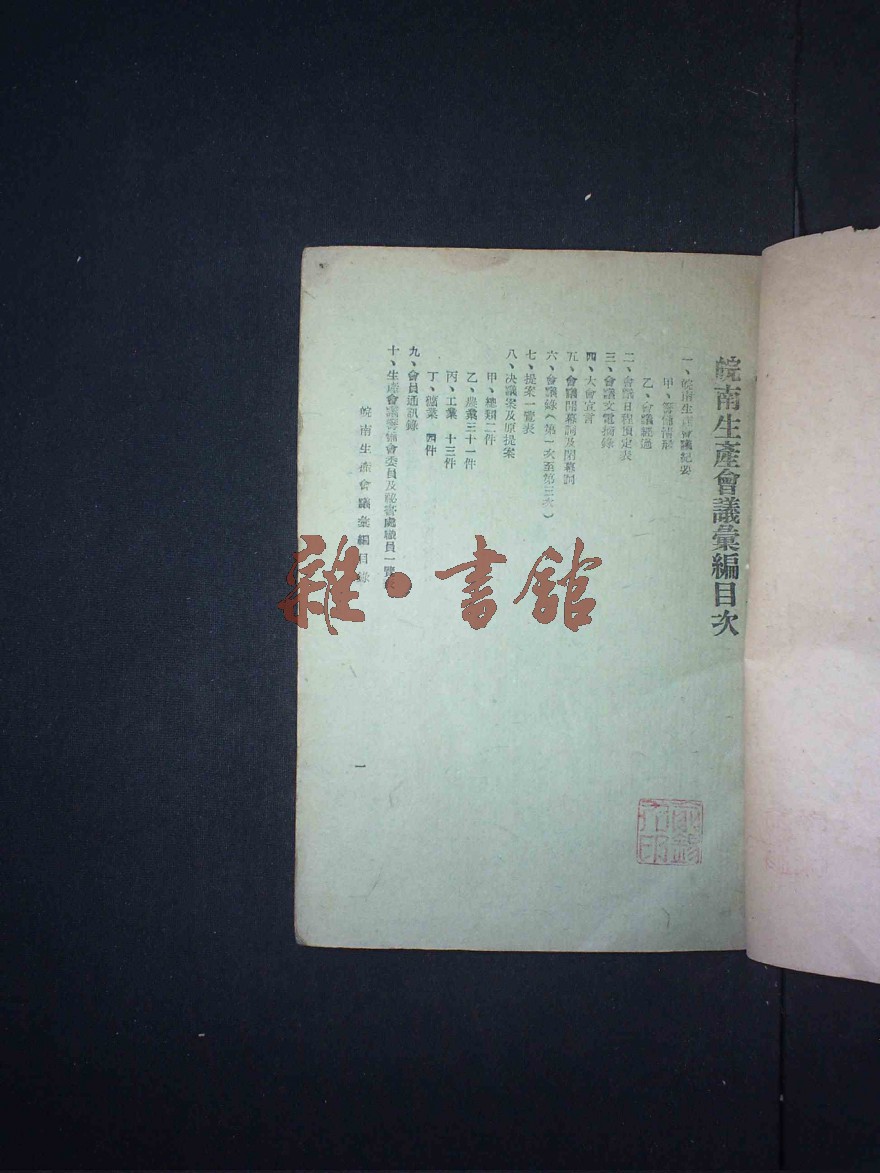 皖南生產會議彙編目次
一、皖南生產會議紀要
甲、籌備情形
乙、會議經過
二、會議日程預定表
三、會議文電摘錄
四、大會宣言
五、會議開幕詞及閉幕詞
六、會議錄(第一次至第三次)
七、提案一覽表
八、決議案及原提案
甲、總類二件
乙、農業三十一件
丙、工業 十三件
丁、礦業 四件
九、會員通訊錄
十、生產會議籌備會委員及秘書處職員一覽
皖南生產會議彙編目錄
一
雜·書館